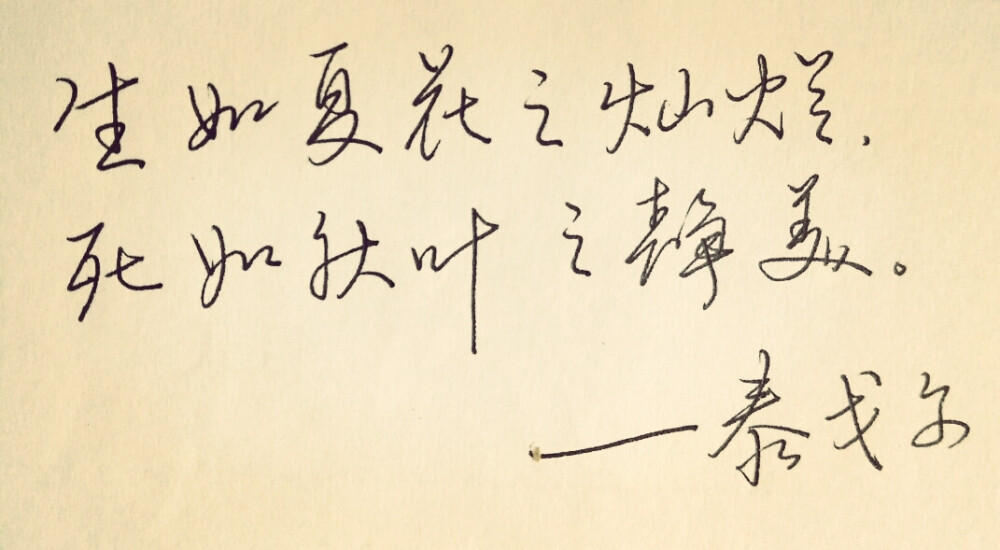 生如夏花之灿烂,
死如秋叶之静美。
——泰戈尔